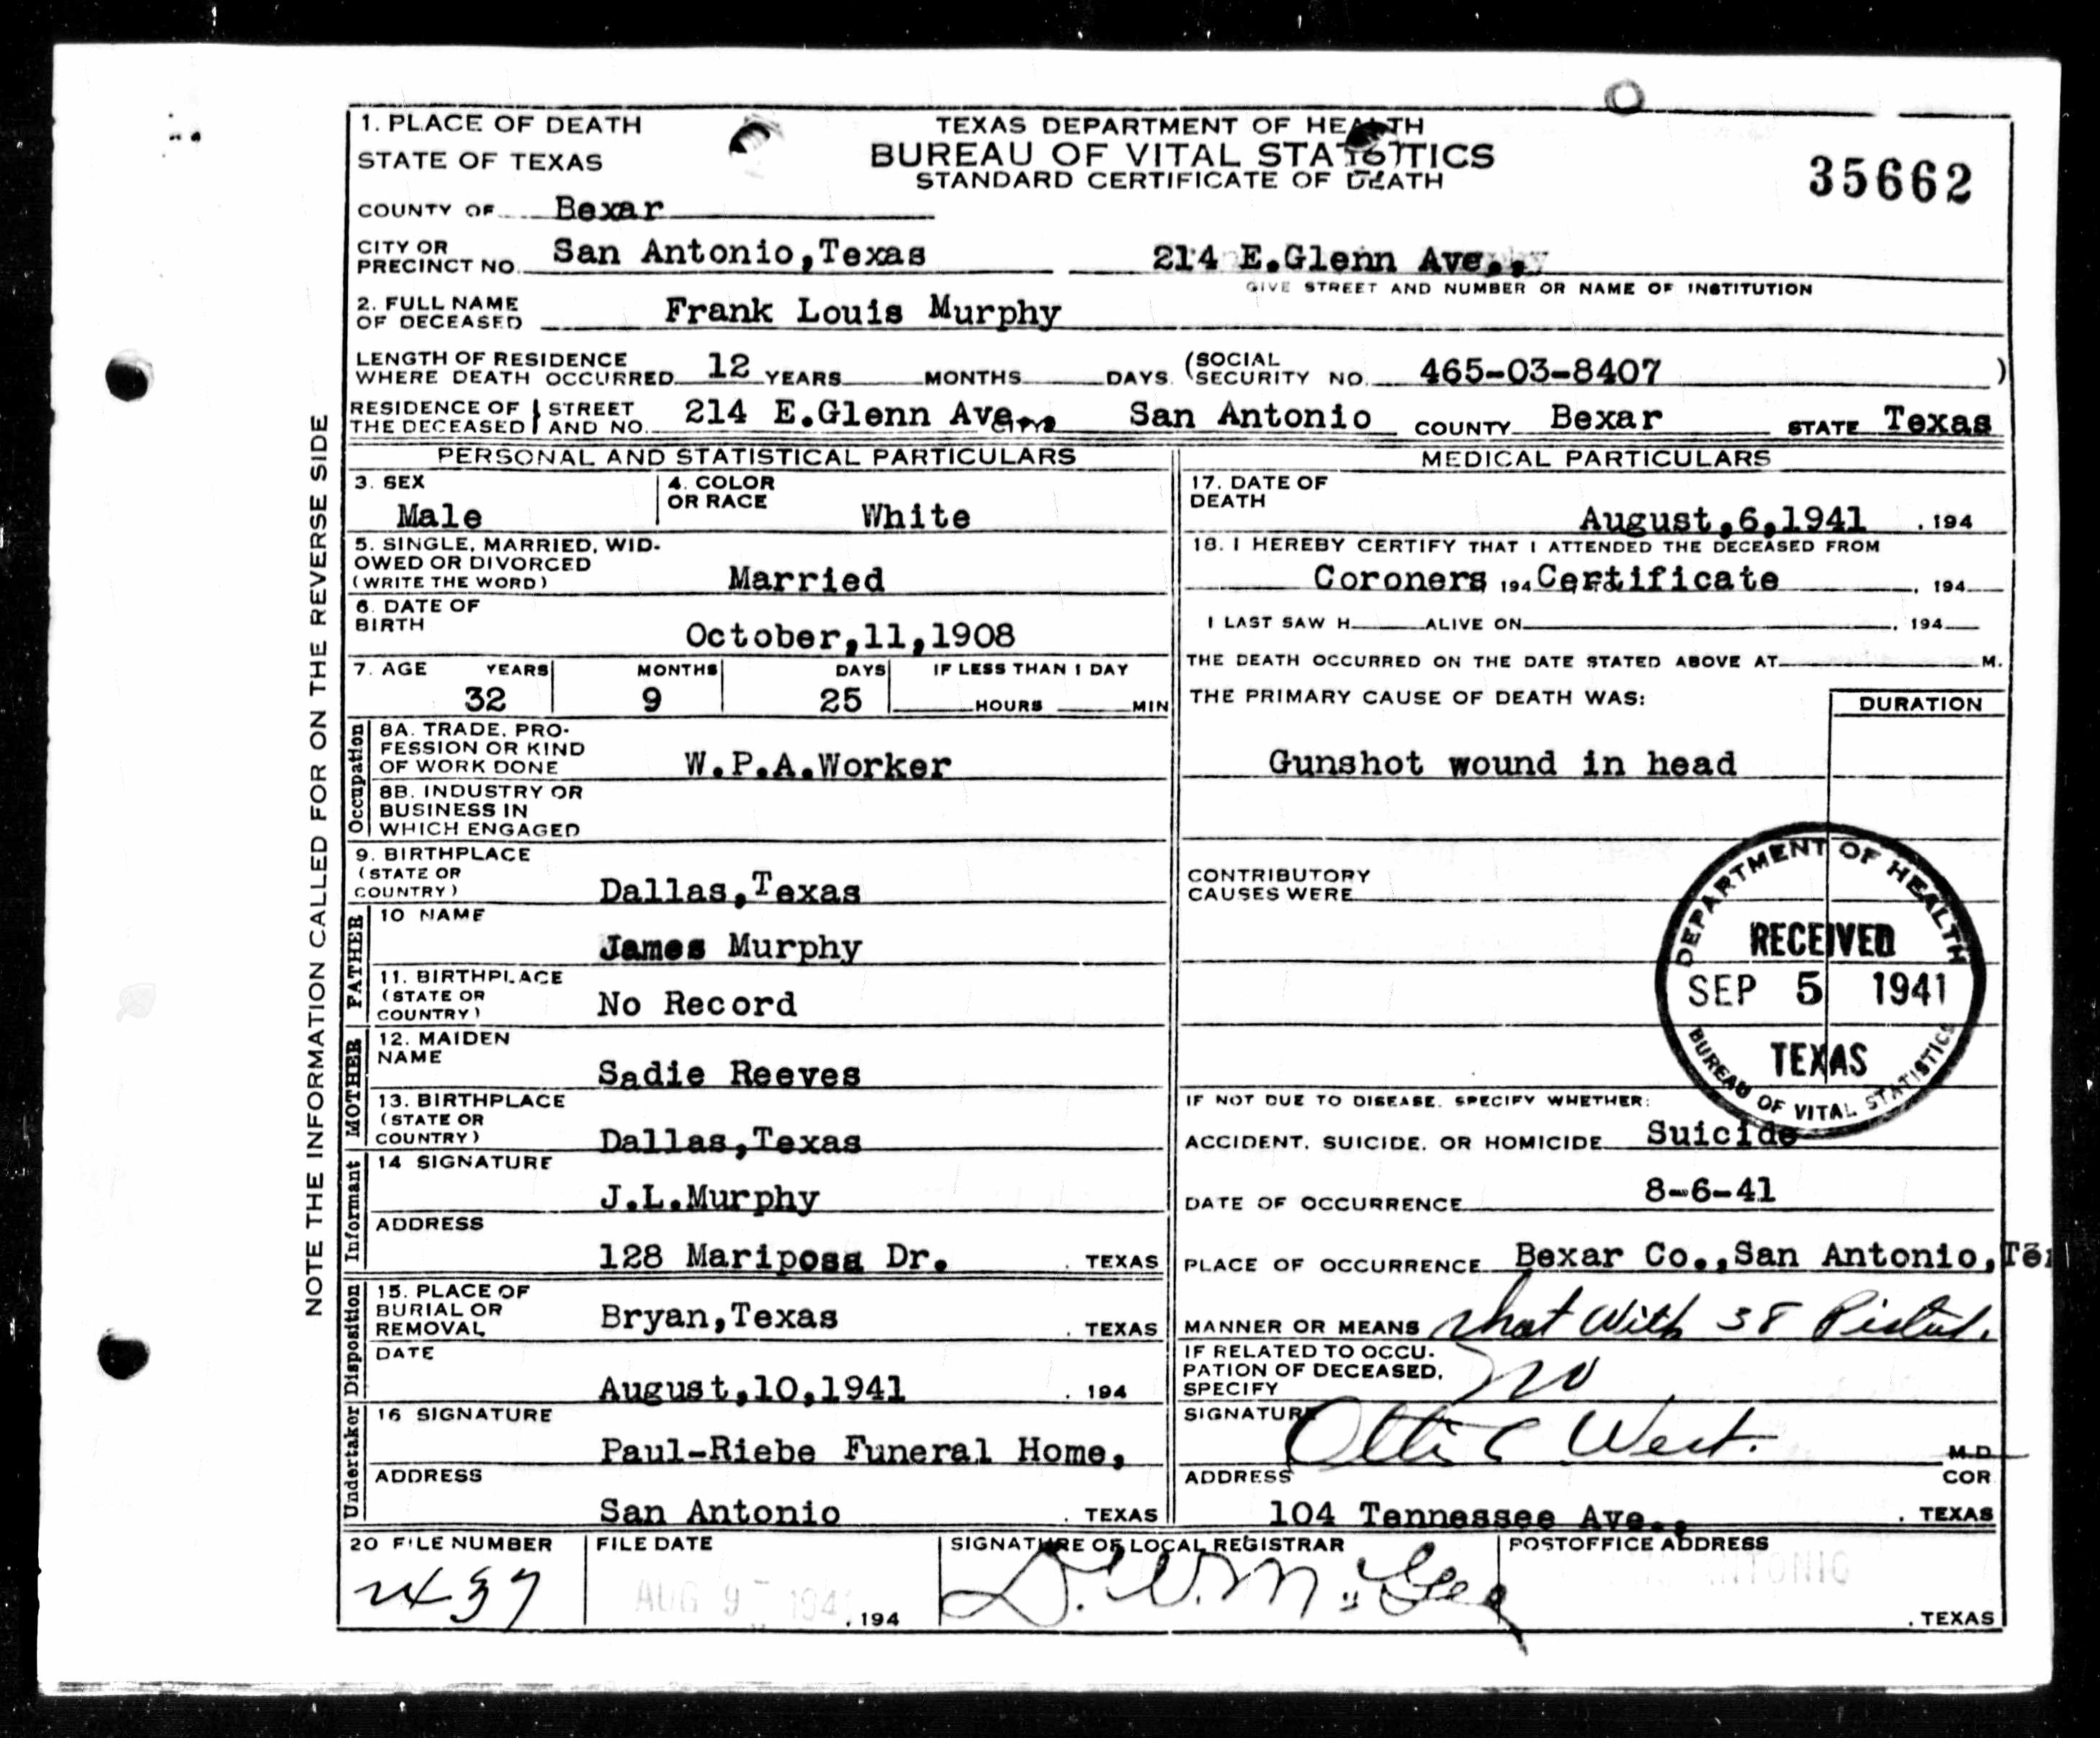 1. PLACE OF DEATH
STATE OF TEXAS
TEXAS DEPARTMENT OF HEALTH
BUREAU OF VITAL STATISTICS
STANDARD CERTIFICATE OF DEATH
35662
COUNTY OF Bexar
CITY OR PRECINCT NO. San Antonio,Texas 214 E.Glenn Ave.,
GIVE STREET AND NUMBER OR NAME OF INSTITUTION
2. FULL NAME OF DECEASED Frank Louis Murphy
LENGTH OF RESIDENCE WHERE DEATH OCCURRED 12 YEARS MONTHS DAYS (SOCIAL SECURITY NO. 465-03-8407 )
RESIDENCE OF THE DECEASED STREET AND NO. 214 E.Glenn Ave., San Antonio COUNTY Bexar STATE Texas
PERSONAL AND STATISTICAL PARTICULARS
3. SEX Male
4. COLOR OR RACE White
5. SINGLE, MARRIED, WIDOWED OR DIVORCED (WRITE THE WORD) Married
6. DATE OF BIRTH October,11,1908
7. AGE YEARS 32 MONTHS 9 DAYS 25 IF LESS THAN 1 DAY HOURS MIN
Occupation
8A. TRADE, PROFESSION OR KIND OF WORK DONE W.P.A.Worker
8B. INDUSTRY OR BUSINESS IN WHICH ENGAGED
9. BIRTHPLACE (STATE OR COUNTRY) Dallas,Texas
FATHER
10 NAME James Murphy
11. BIRTHPLACE (STATE OR COUNTRY) No Record
MOTHER
12. MAIDEN NAME Sadie Reeves
13. BIRTHPLACE (STATE OR COUNTRY) Dallas,Texas
Informant
14 SIGNATURE J.L.Murphy
ADDRESS 128 Mariposa Dr. . TEXAS
Disposition
15. PLACE OF BURIAL OR REMOVAL Bryan,Texas . TEXAS
DATE August,10,1941 . 194
Undertaker
16 SIGNATURE Paul-Riebe Funeral Home,
ADDRESS San Antonio . TEXAS
MEDICAL PARTICULARS
17. DATE OF DEATH August,6,1941 . 194
18. I HEREBY CERTIFY THAT I ATTENDED THE DECEASED FROM
Coroners 194 Certificate , 194
I LAST SAW H ALIVE ON , 194
THE DEATH OCCURRED ON THE DATE STATED ABOVE AT M.
THE PRIMARY CAUSE OF DEATH WAS: DURATION
Gunshot wound in head
CONTRIBUTORY CAUSES WERE
DEPARTMENT OF HEALTH
RECEIVED
SEP 5 1941
TEXAS
BUREAU OF VITAL STATISTICS
IF NOT DUE TO DISEASE, SPECIFY WHETHER:
ACCIDENT, SUICIDE, OR HOMICIDE Suicide
DATE OF OCCURRENCE 8-6-41
PLACE OF OCCURRENCE Bexar Co.,San Antonio,
MANNER OR MEANS Shot With 38 Pistol.
IF RELATED TO OCCUPATION OF DECEASED, SPECIFY No
SIGNATURE Ottis C West. M.D
ADDRESS COR
104 Tennessee Ave., . TEXAS
20 FILE NUMBER 2437
FILE DATE AUG 9 194 , 194
SIGNATURE OF LOCAL REGISTRAR
POSTOFFICE ADDRESS
. TEXAS
NOTE THE INFORMATION CALLED FOR ON THE REVERSE SIDE